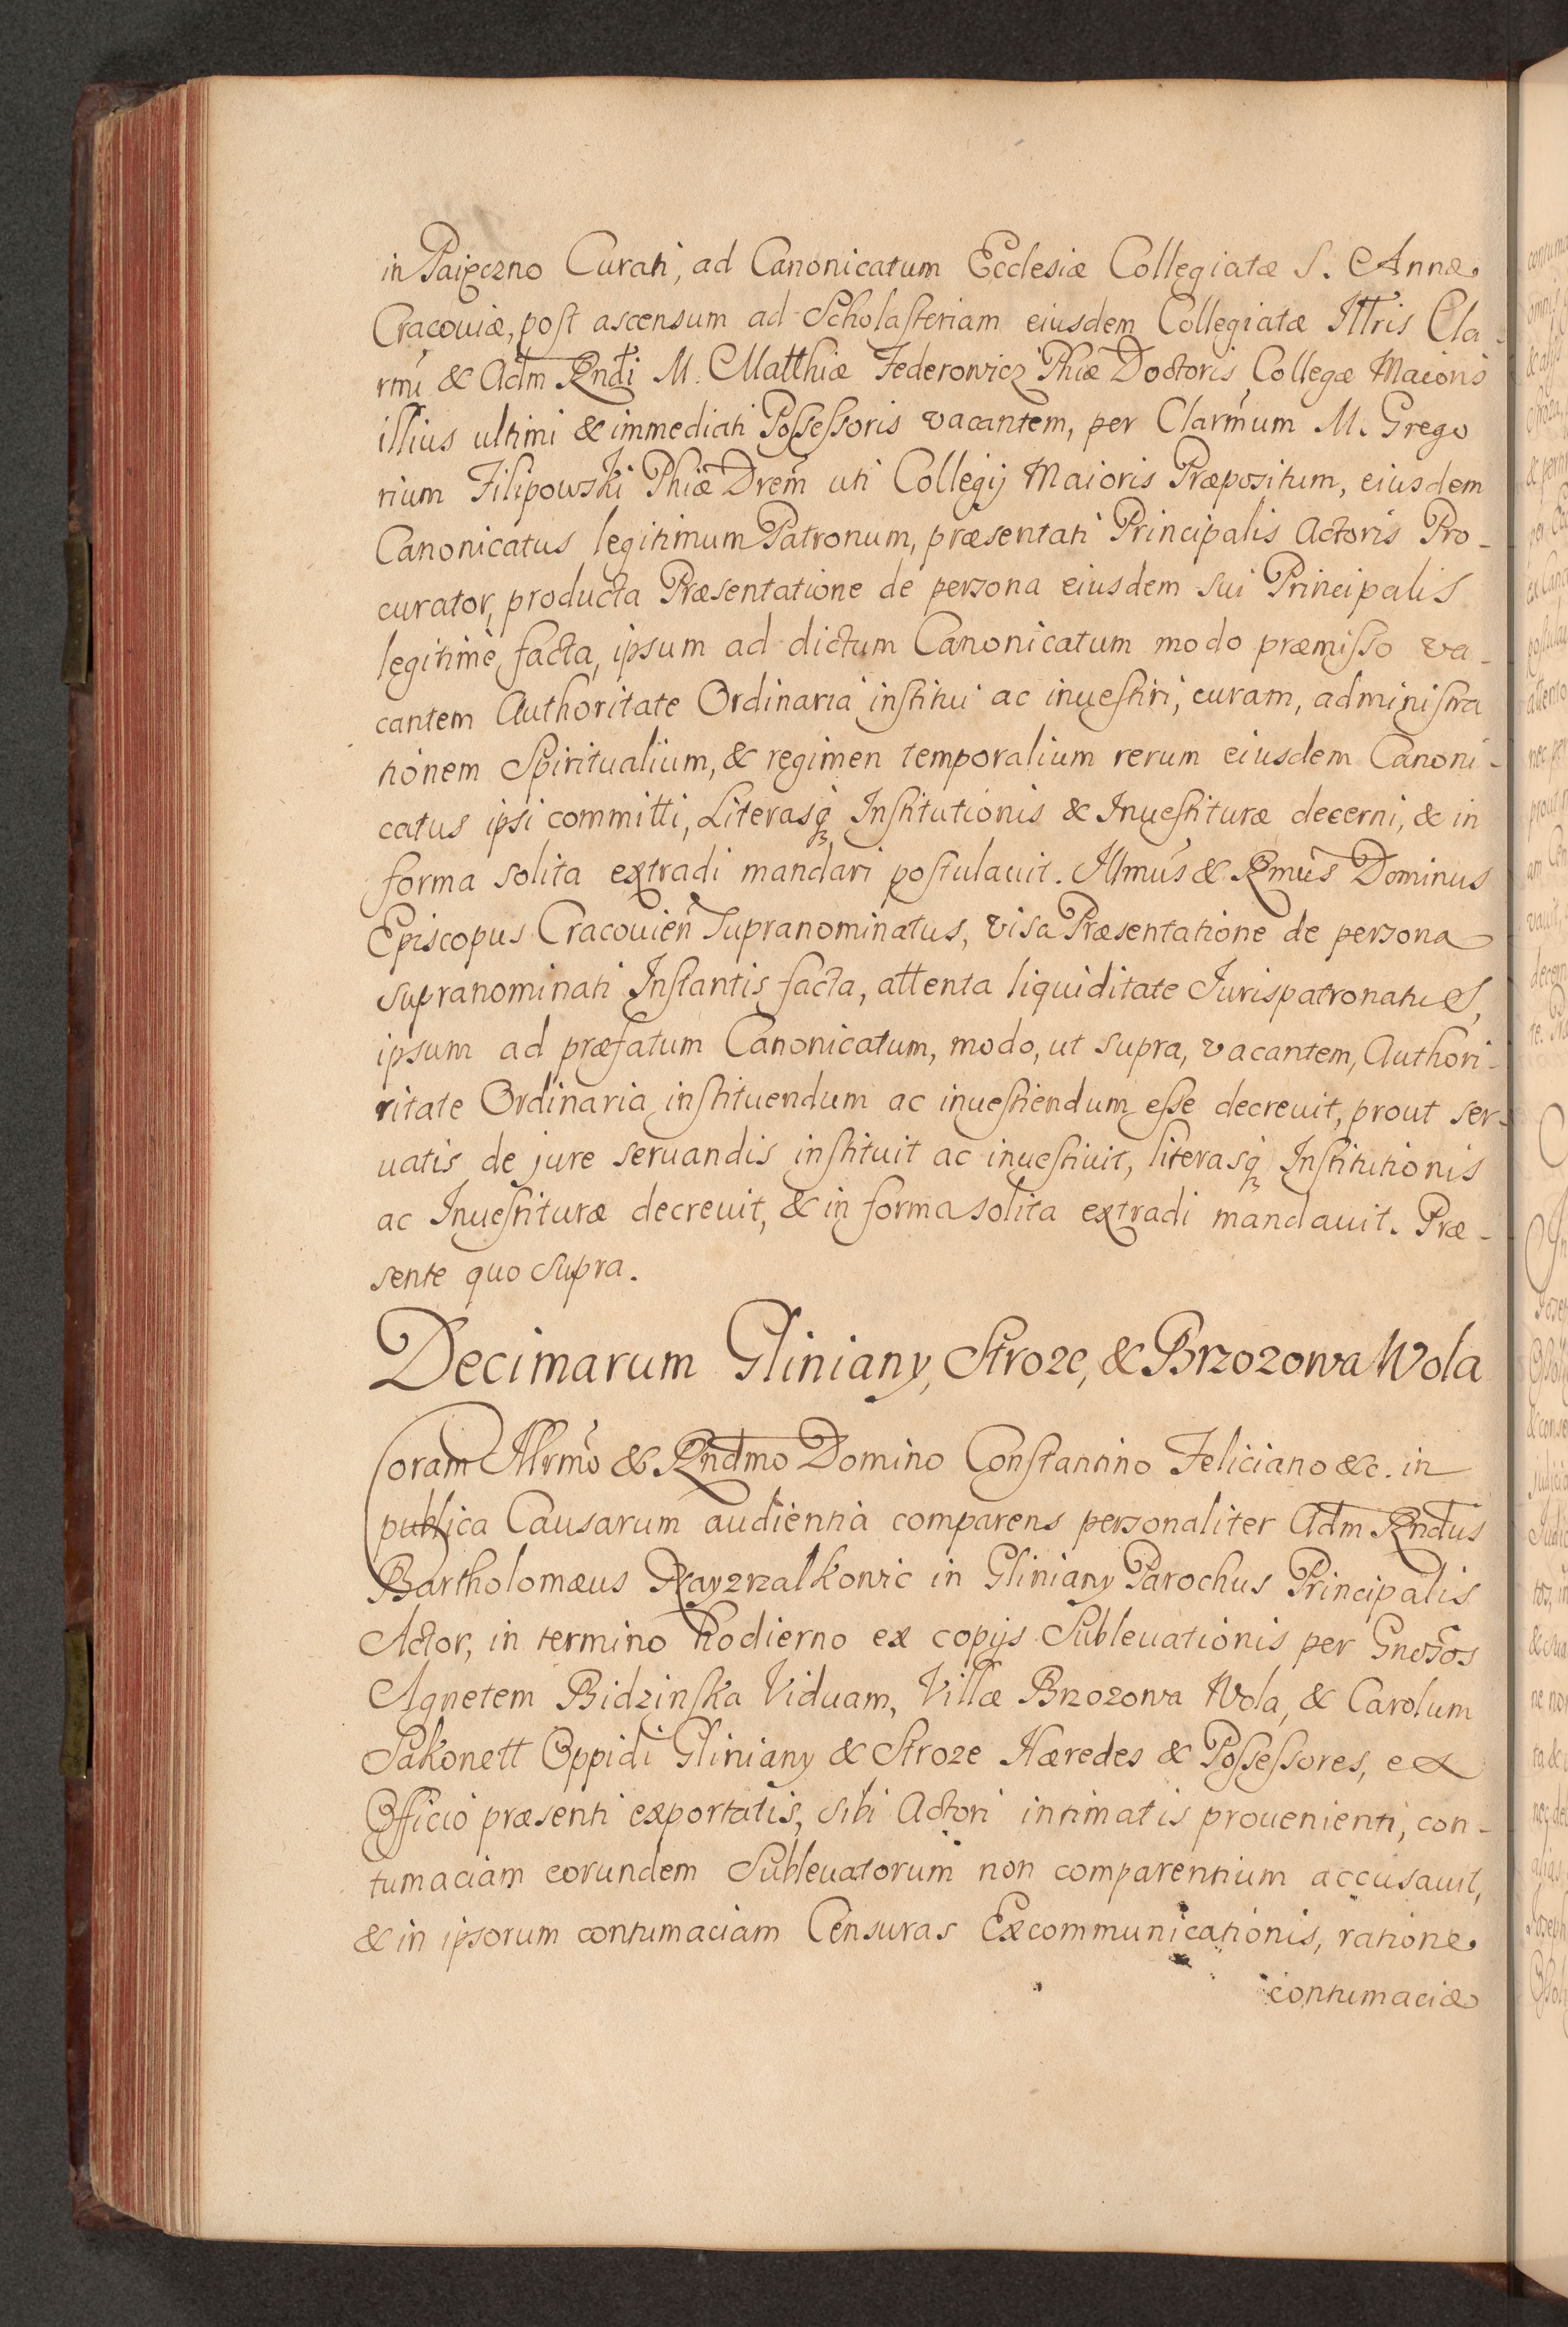 in Paięczno Curati, ad Canonicatum Ecclesiæ Collegiatæ S. Annæ
Cracouiæ, post ascensum ad Scholasteriam eiusdem Collegiatæ Illris Cla-
rmi & Adm Rndi M. Matthiæ Federowicz Phiæ Doctoris Collegæ Maioris
illius ultimi & immediati Possessoris vacantem, per Clarmum M. Grego
rium Filipowski Phiæ Drem uti Collegij Maioris Præpositum, eiusdem
Canonicatus legitimum Patronum, præsentati Principalis Actoris Pro-
curator, producta Præsentatione de persona eiusdem sui Principalis
legitimè facta, ipsum ad dictum Canonicatum modo præmisso va-
cantem Authoritate Ordinaria institui ac inuestiri, curam, administra
tionem Spiritualium, & regimen temporalium rerum eiusdem Canoni-
catus ipsi committi, Literasq3 Institutionis & Inuestituræ decerni, & in
forma solita extradi mandari postulauit. Illmus & Rmus Dominus
Episcopus Cracouien Supranominatus, visa Præsentatione de persona
supranominati Instantis facta, attenta liquiditate Jurispatronatus,
ipsum ad præfatum Canonicatum, modo, ut supra, vacantem, Authori-
ritate Ordinaria instituendum ac inuestiendum esse decreuit, prout ser-
uatis de jure seruandis instituit ac inuestiuit, literasq3 Institutionis
ac Inuestituræ decreuit, & in forma solita extradi mandauit. Præ-
sente quo supra.
Decimarum Gliniany, Stroze, & Brzozowa Wola
Coram Illrmo & Rndmo Domino Constantino Feliciano &c. in
publica Causarum audientia comparens personaliter Adm Rndus
Bartholomæus in Gliniany Parochus Principalis
Actor, in termino hodierno ex copijs Subleuationis per Gnosos
Agnetem Bidzinska Viduam, Villæ Brzozowa Wola, & Carolum
Sakonett Oppidi Gliniany & Stroze Hæredes & Possessores, ex
Officio præsenti exportatis, sibi Actori intimatis prouenienti, con-
tumaciam eorundem Subleuatorum non comparentium accusauit,
& in ipsorum contumaciam Censuras Excommunicationis, ratione
contumaciæ